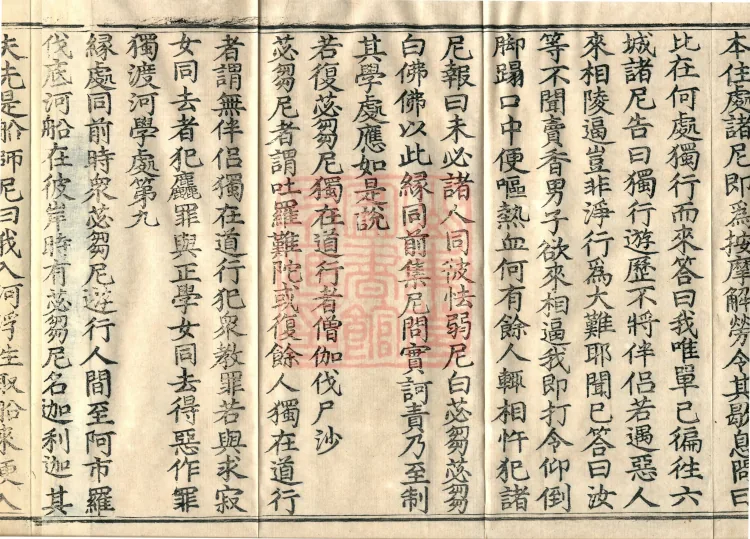 本住處諸尼即為按摩解勞令其歇息問曰
比在何處獨行而來答曰我唯單己徧往六
城諸尼告曰獨行遊歷不將伴侶若遇惡人
來相陵逼豈非淨行為大難耶聞已答曰汝
等不聞賣香男子欲來相逼我即打令仰倒
脚蹋口中便嘔熱血何有餘人輒相忤犯諸
尼報曰未必諸人同彼怯弱尼白苾芻苾芻
白佛佛以此緣同前集尼問實訶責乃至制
其學處應如是說
若復苾芻尼獨在道行者僧伽伐尸沙
苾芻尼者謂吐羅難陀或復餘人獨在道行
者謂無伴侶獨在道行犯衆教罪若與求寂
女同去者犯麤罪與正學女同去得惡作罪
獨渡河學處第九
緣處同前時衆苾芻尼遊行人間至阿市羅
伐底河船在彼岸時有苾芻尼名迦利迦其
夫先是船師尼曰我入河浮至取船來便入